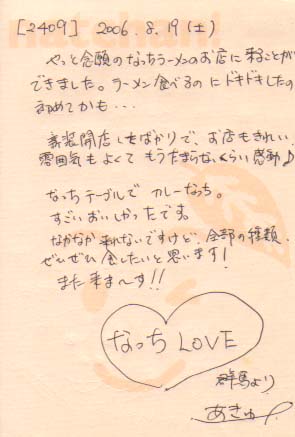 [2409] 2006.8.19(土)
やっと念願のなっちラーメンのお店に来ることが
できました。ラーメン食べるのにドキドキしたの
初めてかも・・・
新装開店したばかりで、お店もきれい、
雰囲気もよくてもうたまらないくらい感動♪
なっちテーブルでカレーなっち。
すごいおいしかったです。
なかなか来れないですけど、全部の種類、
ぜひぜひ食したいと思います!
また来ま~す!!
なっち LOVE
群馬より
あきゅ